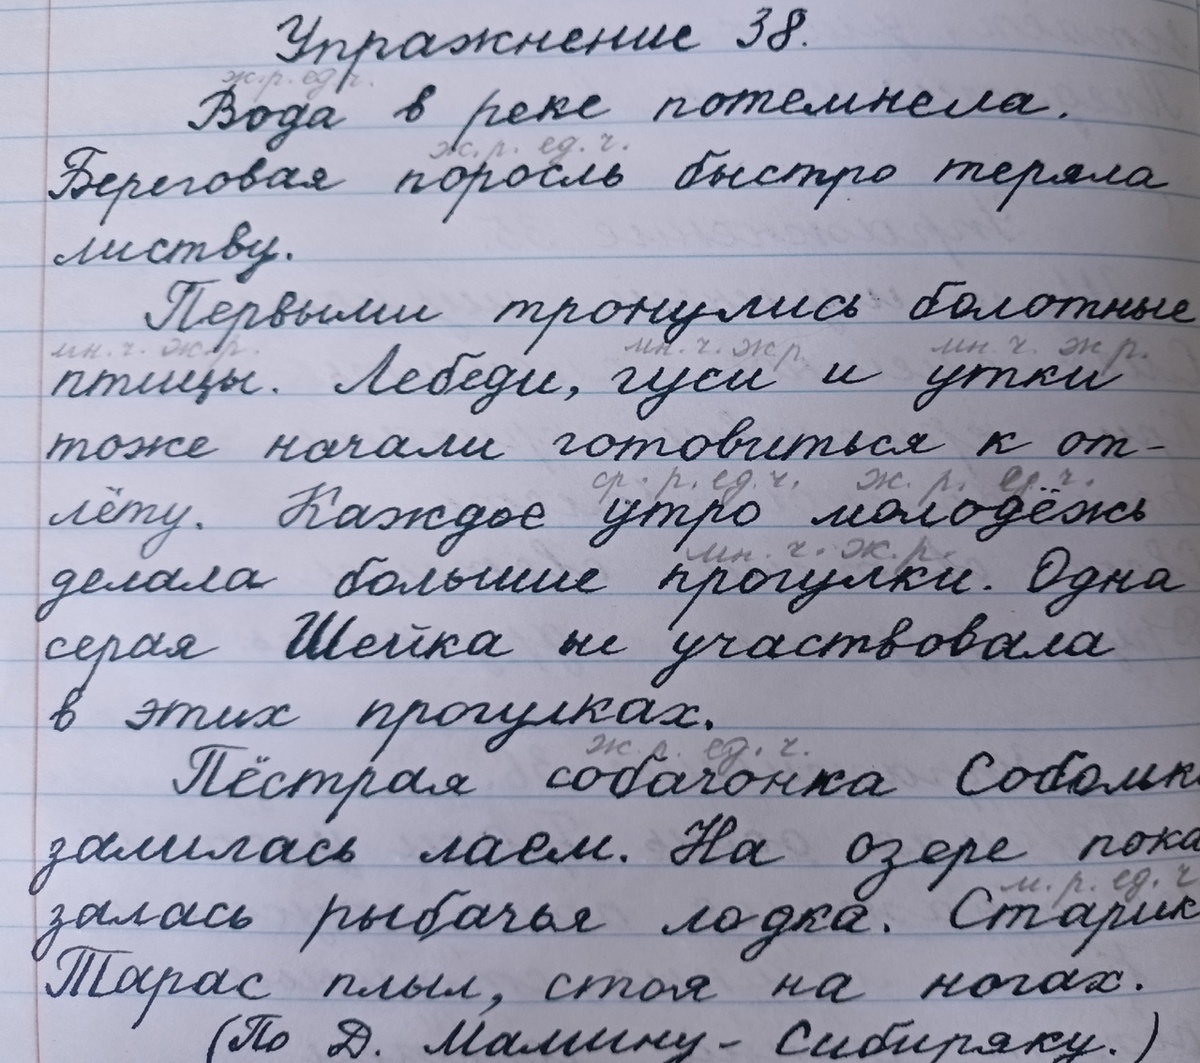 Упражнение 38.
ж.р. ед.ч.
Вода в реке потемнела.
ж.р. ед.ч.
Береговая поросль быстро теряла
листву.
Первыми тронулись болотные
мн.ч. ж.р. мн.ч. ж.р. мн.ч. ж.р.
птицы. Лебеди, гуси и утки
тоже начали готовиться к от-
ср.р. ед.ч. ж.р. ед.ч.
лёту. Каждое утро молодёжь
мн.ч. ж.р.
делала большие прогулки. Одна
серая Шейка не участвовала
в этих прогулках.
ж.р. ед.ч.
Пёстрая собачонка Соболк
залилась лаем. На озере пока
м.р. ед.ч
залась рыбачья лодка. Старик
Тарас плыл, стоя на ногах.
(По Д. Мамину-Сибиряку.)